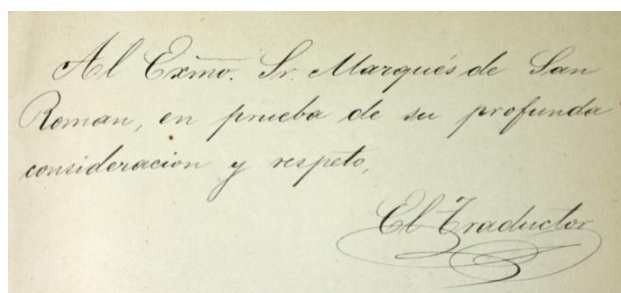 Al Exmo. Sr. Marqués de San
Roman, en prueba de su profunda
consideracion y respeto,
El Traductor